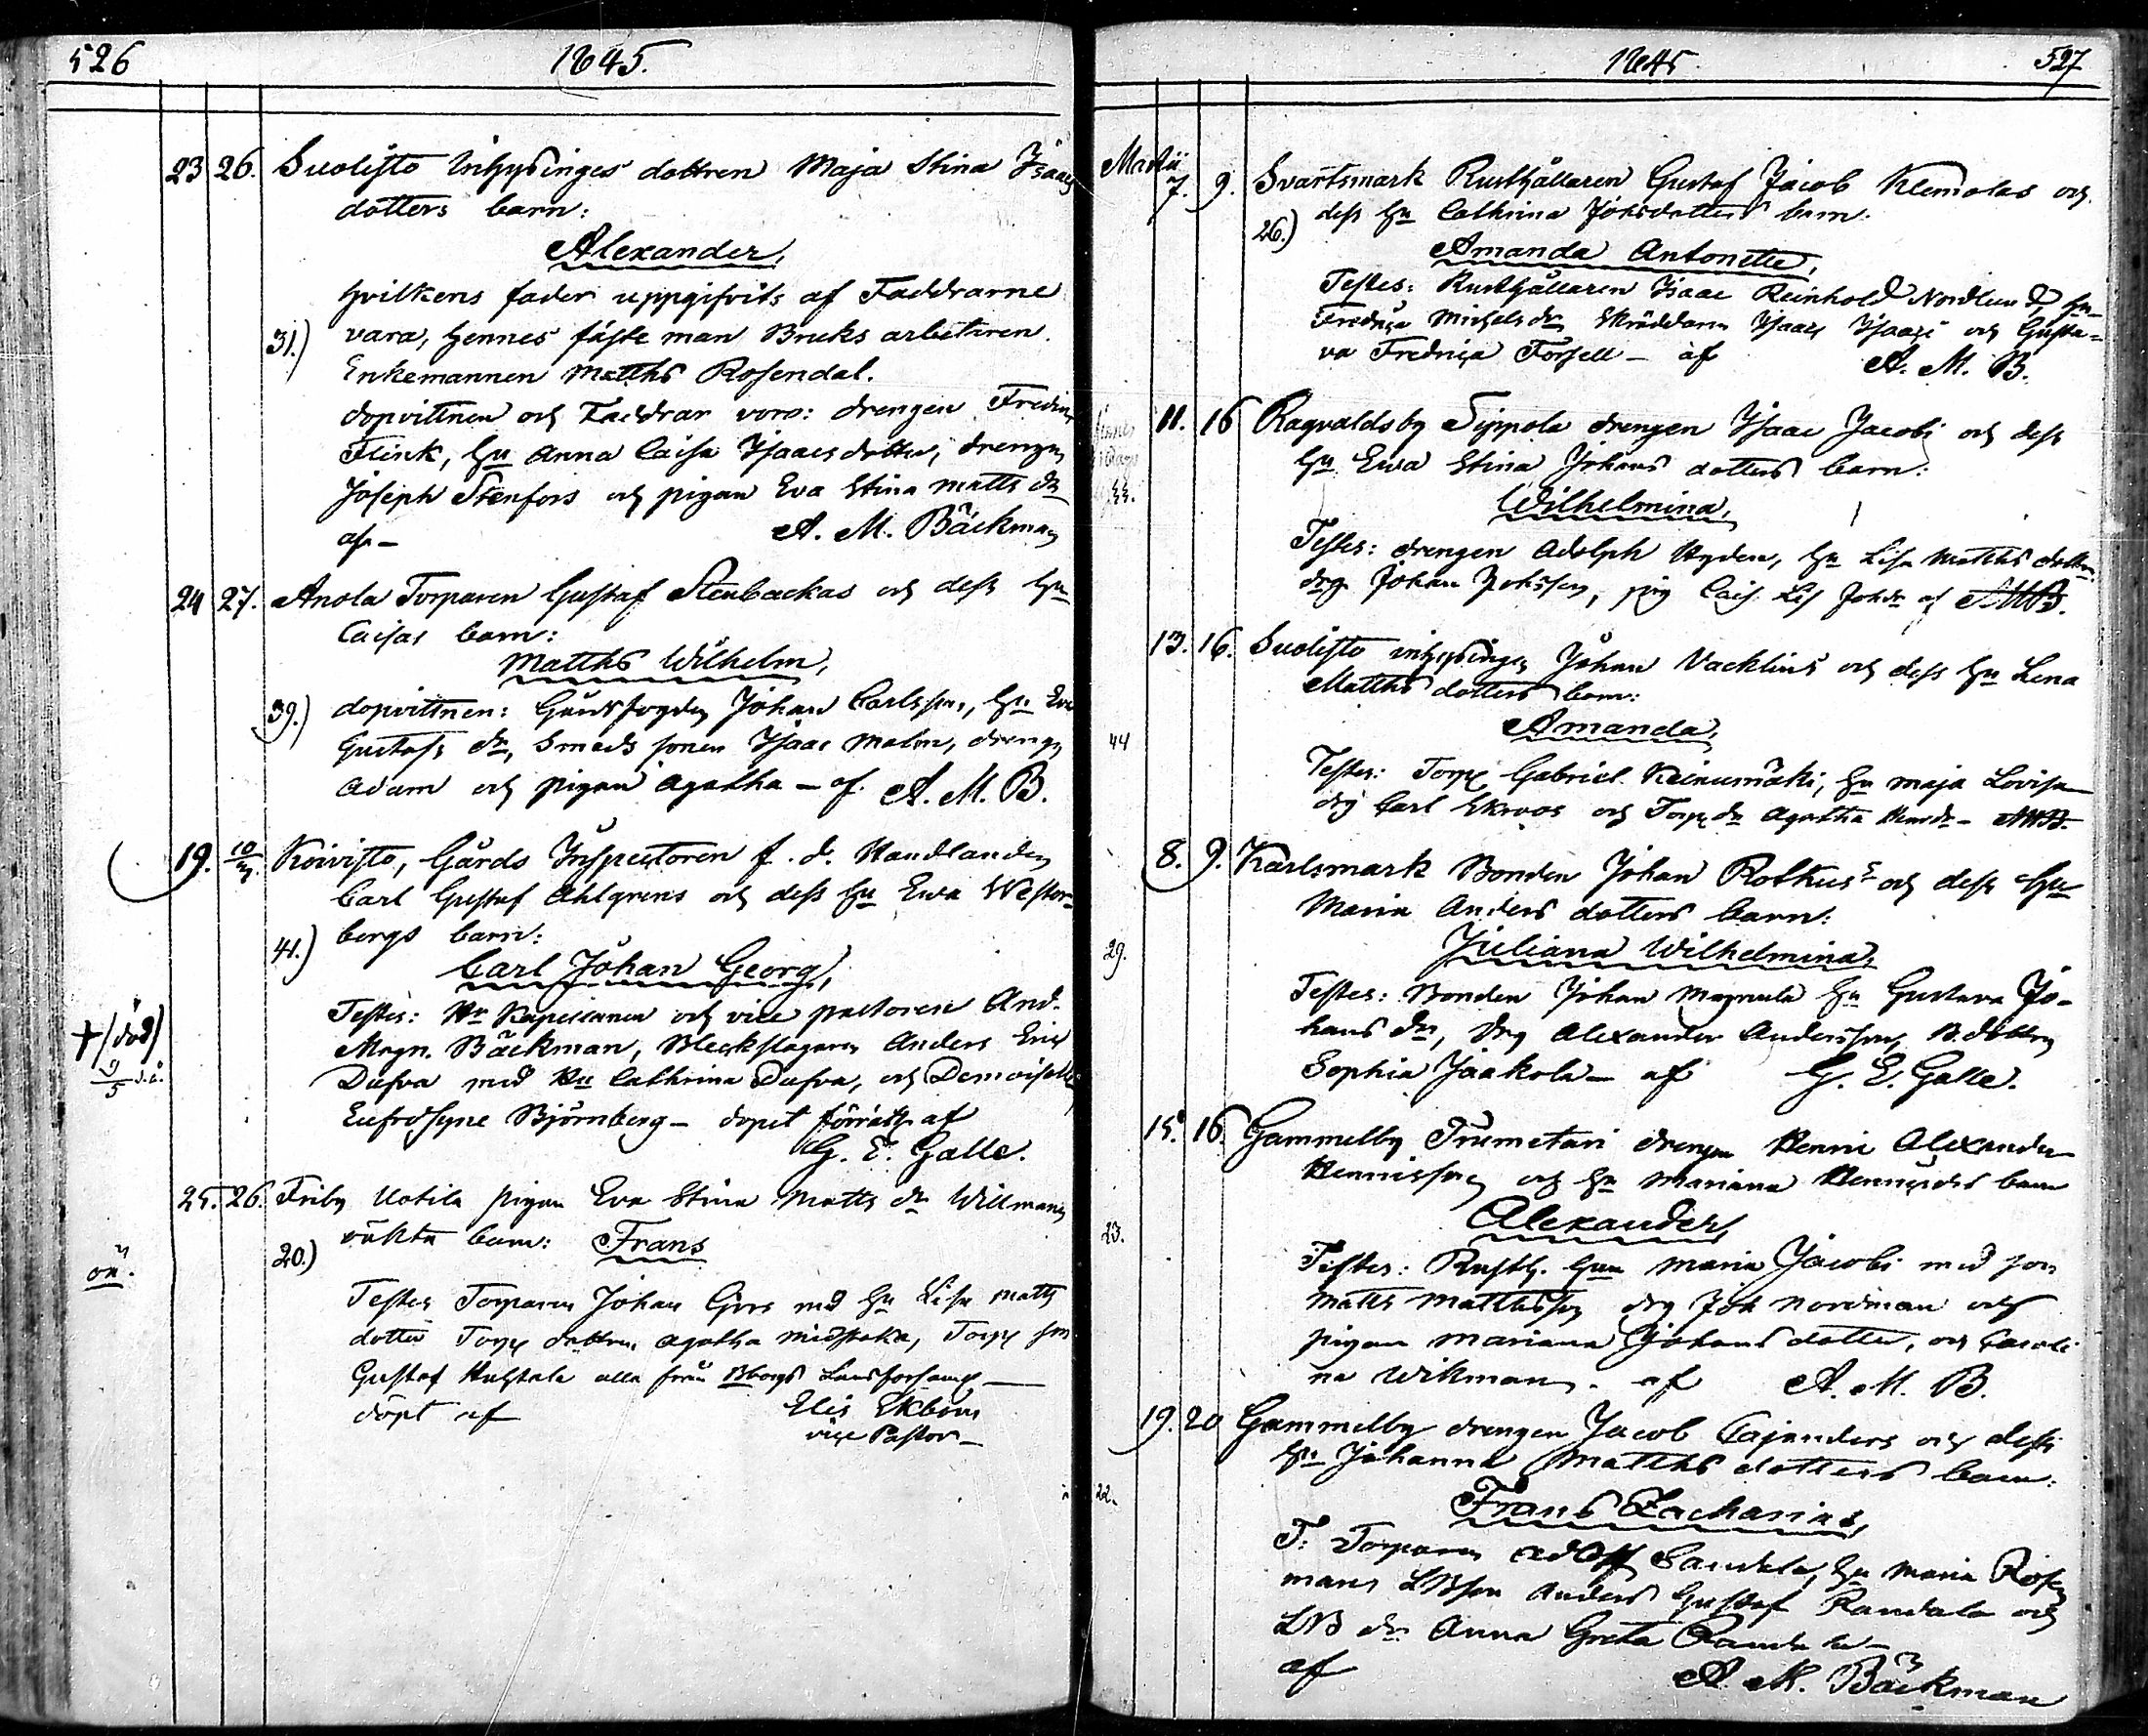 526 1845.
23 26. Suolisto Inhysinges dottren Maja Stina Isaacs
dotters barn:
Alexander,
hvilkens fader uppgifvits af Faddrarne
31.) vara, hennes fäste man Bruks arbetaren
Enkemannen Matths Rosendal.
dopvittnen och Faddrar voro: drengen Fredric
Flink, Hu Anna Caisa Isaacsdotter, drengen
Joseph Stenfors och pigan Eva Stina Matts dr
af - A. M. Bäckman
24 27. Anola Torparen Gustaf Stenbackas och dess Hu
Caisas barn:
Matths Wilhelm,
39.) dopvittnen: Johan Carlsson, Hu Eva
Gustafs dr, Smeds sonen Isaac Malm, drengen
Adam och pigan Agatha - af A. M. B.
19. 10/3 Koivisto, Gårds Inspectoren f. d. Handlanden
Carl Gustaf Ahlgrens och dess Hu Eva Wester=
41.) bergs barn:
Carl Johan Georg,
Testes: Hr Kapellanen och vice pastoren And.
+ (död)
Magn. Bäckman, Bleckslagaren Anders Eric
9/5 d.å.
Dufva med Hu Cathrina Dufva, och Demoiselle
Eufrosyne Björnberg - döpt af
G. E. Galle.
25. 26. Friby Uotila pigan Eva Stina Matts dr Willmans
20.) oäkta barn: Frans
oä.
Testes Torparen Johan Gers med Hu Lisa Matts
dotter Torp dottren Agatha Torp son
Gustaf alla från Bborgs Landsforsamg
döpt af Elis Ekbom
vice Pastor
1845. 527
Martii
7. 9. Svartsmark Rusthållaren Gustaf Jacob Klemolas och
dess Hu Cathrina Johsdotters barn.
26.)
Amanda Antonette,
Testes: Rusthållaren Isaac Reinhold Nordlund, Hu
Fredrica Michels dr, Skräddaren Isaac Isacs och Gusta=
va Fredrica Forsell - af A. M. B.
11. 16 Ragvaldsby Sippola drengen Isaac Jacobs och dess
Hu Eva Stina Johans dotters barn:
Wilhelmina,
Testes: drengen Adolph Hyden, Hu Lisa Matths dotter
drg Johan Johsson, pig Cais. Lis Johdr af AMB.
13. 16. Suolisto inhysingen Johan Vacklins och dess Hu Lena
Matths dotters barn:
44 Amanda,
Testes: Torp Gabriel Keinumäki, Hu Maja Lovisa
drg Carl Ekroos och Torp dr Agatha Henrdr - AMB.
8. 9. Karlsmark Bonden Johan Rotkus och dess Hu
Maria Anders dotters barn:
29. Juliana Wilhelmina,
Testes: Bonden Johan Magnula Hu Gustava Jo-
hans dr, Drg Alexander Andersson, B. dottren
Sophia Jaakola - af G. E. Galle.
15. 16. Gammelby Trumetari drengen Henric Alexander
Henricsson och Hu Mariana Henricsdrs barn
23. Alexander,
Testes: Rusth. Hun Maria Jacobs med son
Matts Mattsson drg Joh Nordman och
pigan Mariana Johans dotter, och Caroli
na Wikman. af A. M. B.
19. 20 Gammelby drengen Jacob Cajanders och dess
Hu Johanna Matths dotters barn:
22. Frans Zacharias,
T: Torparen Adolf Sandela, Hu Maria Rosen
mans LBson Anders Gustaf Randala och
LB dr Anna Greta Randala
af A. M. Bäckman